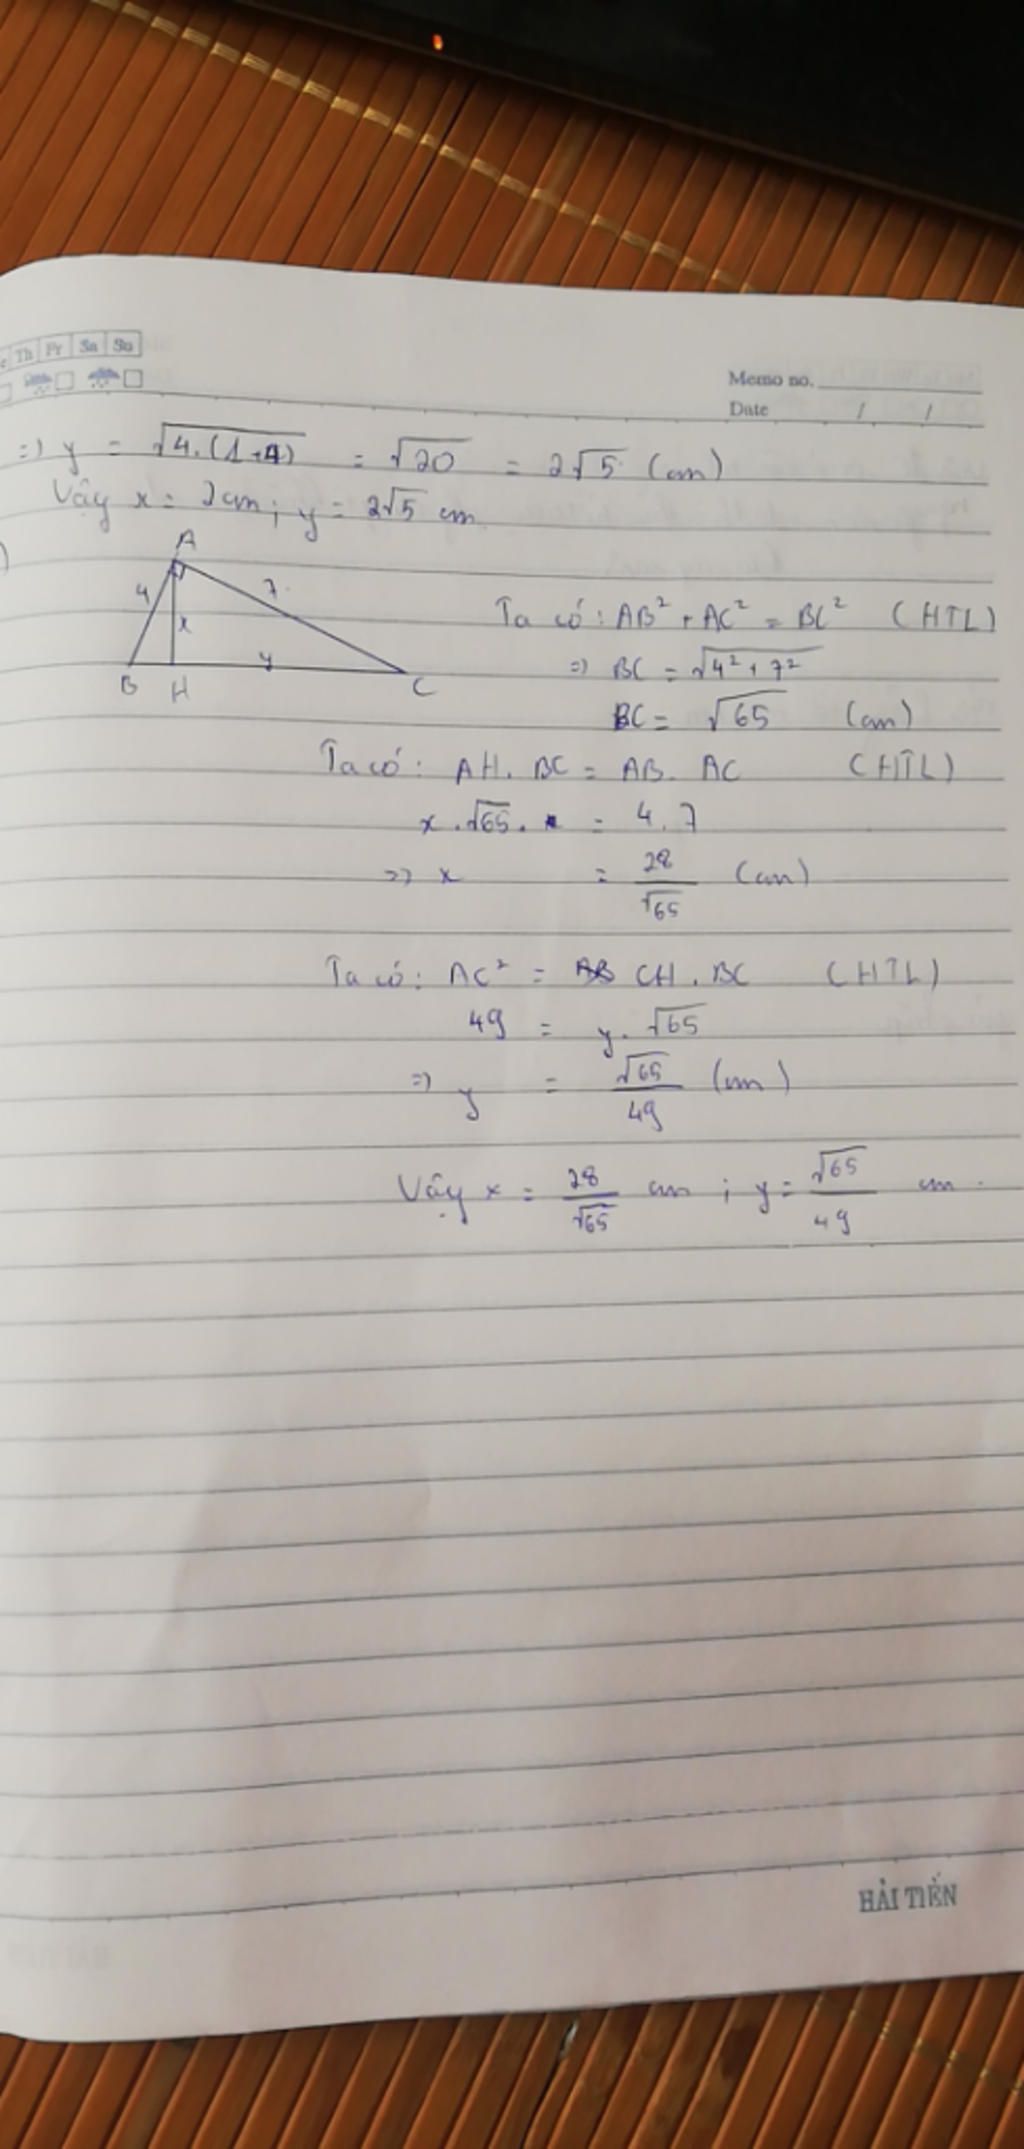 Th Fr Sa Su
Memo no.
Date / /
=) y = √4.(1+4) = √20 = 2√5 (cm)
Vậy x = 2cm ; y = 2√5 cm
)
A
4 7
x
y
B H C
Ta có : AB² + AC² = BC² (HTL)
=) BC = √4² + 7²
BC = √65 (cm)
Ta có : AH . BC = AB . AC (HTL)
x . √65 . = 4 . 7
=) x = 28/√65 (cm)
Ta có : AC² = AB CH . BC (HTL)
49 = y . √65
=) y = √65/49 (cm)
Vậy x = 28/√65 cm ; y = √65/49 cm .
HẢI TIẾN